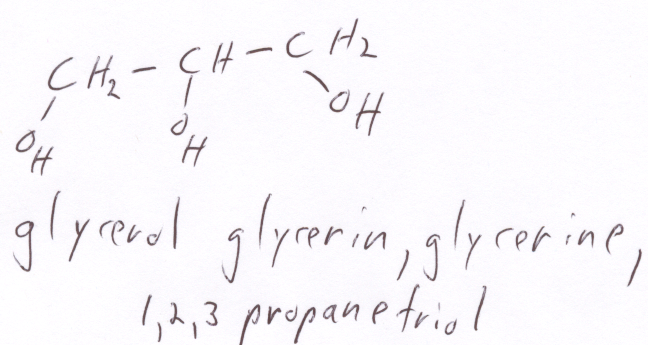 CH2 - CH - CH2
OH OH OH
glycerol glycerin, glycerine,
1,2,3 propanetriol